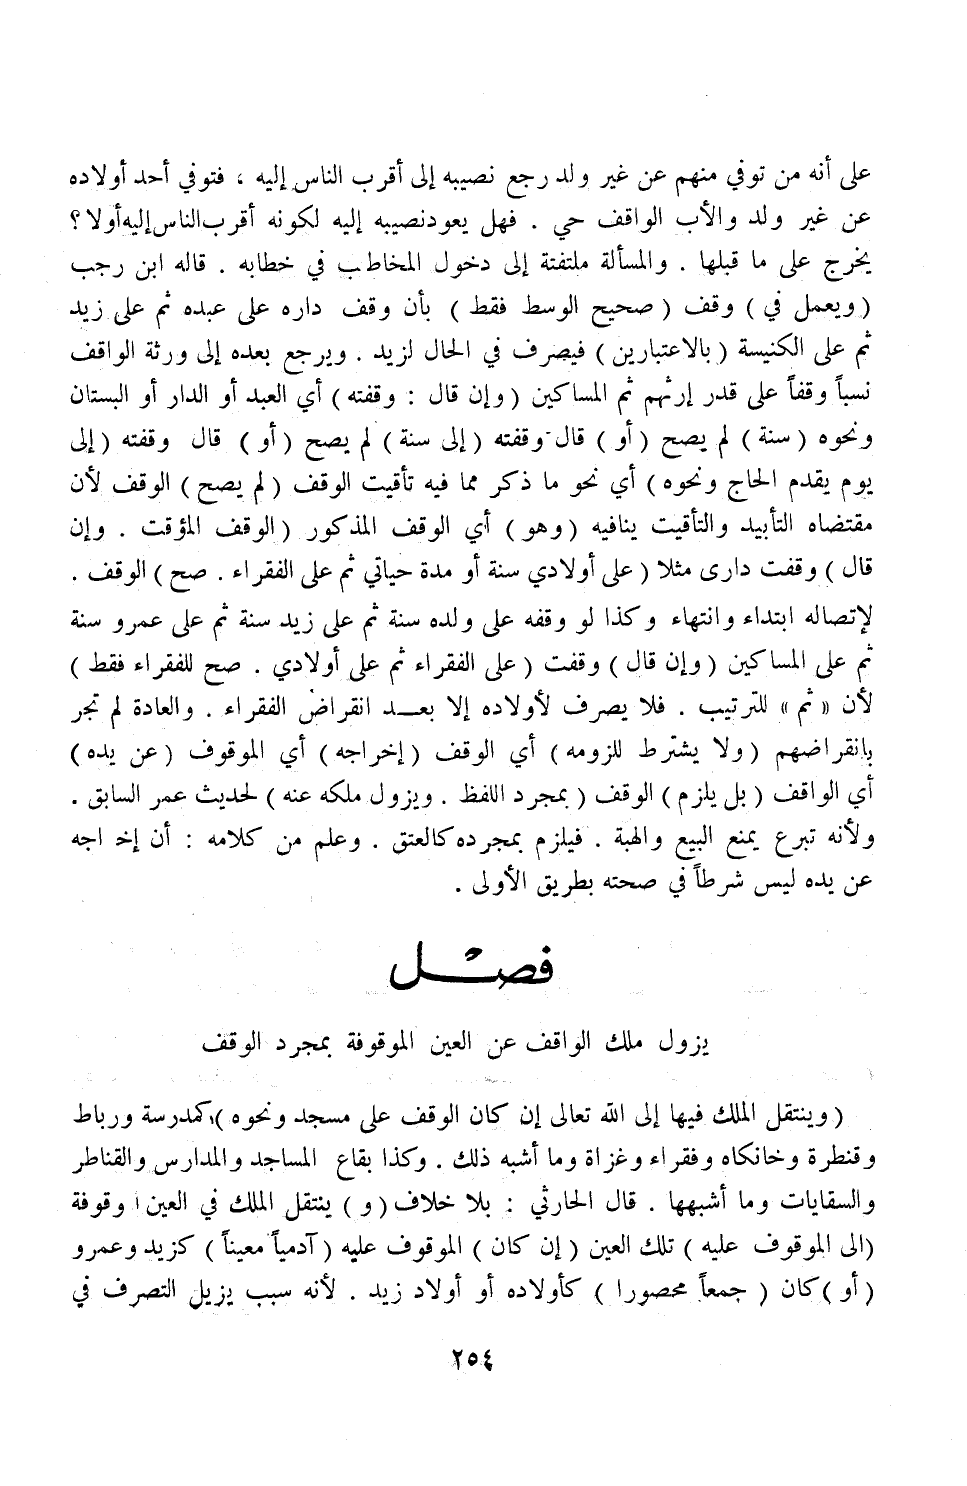 على أنه من توفي منهم عن غير ولد رجع نصيبه إلى أقرب الناس إليه ، فتوفي أحد أولاده
عن غير ولد والأب الواقف حي . فهل يعود نصيبه إليه لكونه أقرب الناس إليه أولا ؟
يخرج على ما قبلها . والمسألة ملتفتة إلى دخول المخاطب في خطابه . قاله ابن رجب
( ويعمل في ) وقف ( صحيح الوسط فقط ) بأن وقف داره على عبده ثم على زيد
ثم على الكنيسة ( بالاعتبارين ) فيصرف في الحال لزيد . ويرجع بعده إلى ورثة الواقف
نسباً وقفاً على قدر إرثهم ثم المساكين ( وإن قال : وقفته ) أي العبد أو الدار أو البستان
ونحوه ( سنة ) لم يصح ( أو ) قال وقفته ( إلى سنة ) لم يصح ( أو ) قال وقفته ( إلى
يوم يقدم الحاج ونحوه ) أي نحو ما ذكر مما فيه تأقيت الوقف ( لم يصح ) الوقف لأن
مقتضاه التأبيد والتأقيت ينافيه ( وهو ) أي الوقف المذكور ( الوقف المؤقت . وإن
قال ) وقفت دارى مثلا ( على أولادي سنة أو مدة حياتي ثم على الفقراء . صح ) الوقف .
لإتصاله ابتداء وانتهاء وكذا لو وقفه على ولده سنة ثم على زيد سنة ثم على عمرو سنة
ثم على المساكين ( وإن قال ) وقفت ( على الفقراء ثم على أولادي . صح للفقراء فقط )
لأن « ثم » للترتيب . فلا يصرف لأولاده إلا بعـــد انقراض الفقراء . والعادة لم تجر
بانقراضهم ( ولا يشترط للزومه ) أي الوقف ( إخراجه ) أي الموقوف ( عن يده )
أي الواقف ( بل يلزم ) الوقف ( بمجرد اللفظ . ويزول ملكه عنه ) لحديث عمر السابق .
ولأنه تبرع يمنع البيع والهبة . فيلزم بمجرده كالعتق . وعلم من كلامه : أن إخ اجه
عن يده ليس شرطاً في صحته بطريق الأولى .
فصـــل
يزول ملك الواقف عن العين الموقوفة بمجرد الوقف
( وينتقل الملك فيها إلى الله تعالى إن كان الوقف على مسجد ونحوه ) كمدرسة ورباط
وقنطرة وخانكاه وفقراء وغزاة وما أشبه ذلك . وكذا بقاع المساجد والمدارس والقناطر
والسقايات وما أشبهها . قال الحارثي : بلا خلاف ( و ) ينتقل الملك في العين ا وقوفة
( الى الموقوف عليه ) تلك العين ( إن كان ) الموقوف عليه ( آدمياً معيناً ) كزيد وعمرو
( أو ) كان ( جمعاً محصورا ) كأولاده أو أولاد زيد . لأنه سبب يزيل التصرف في
٢٥٤